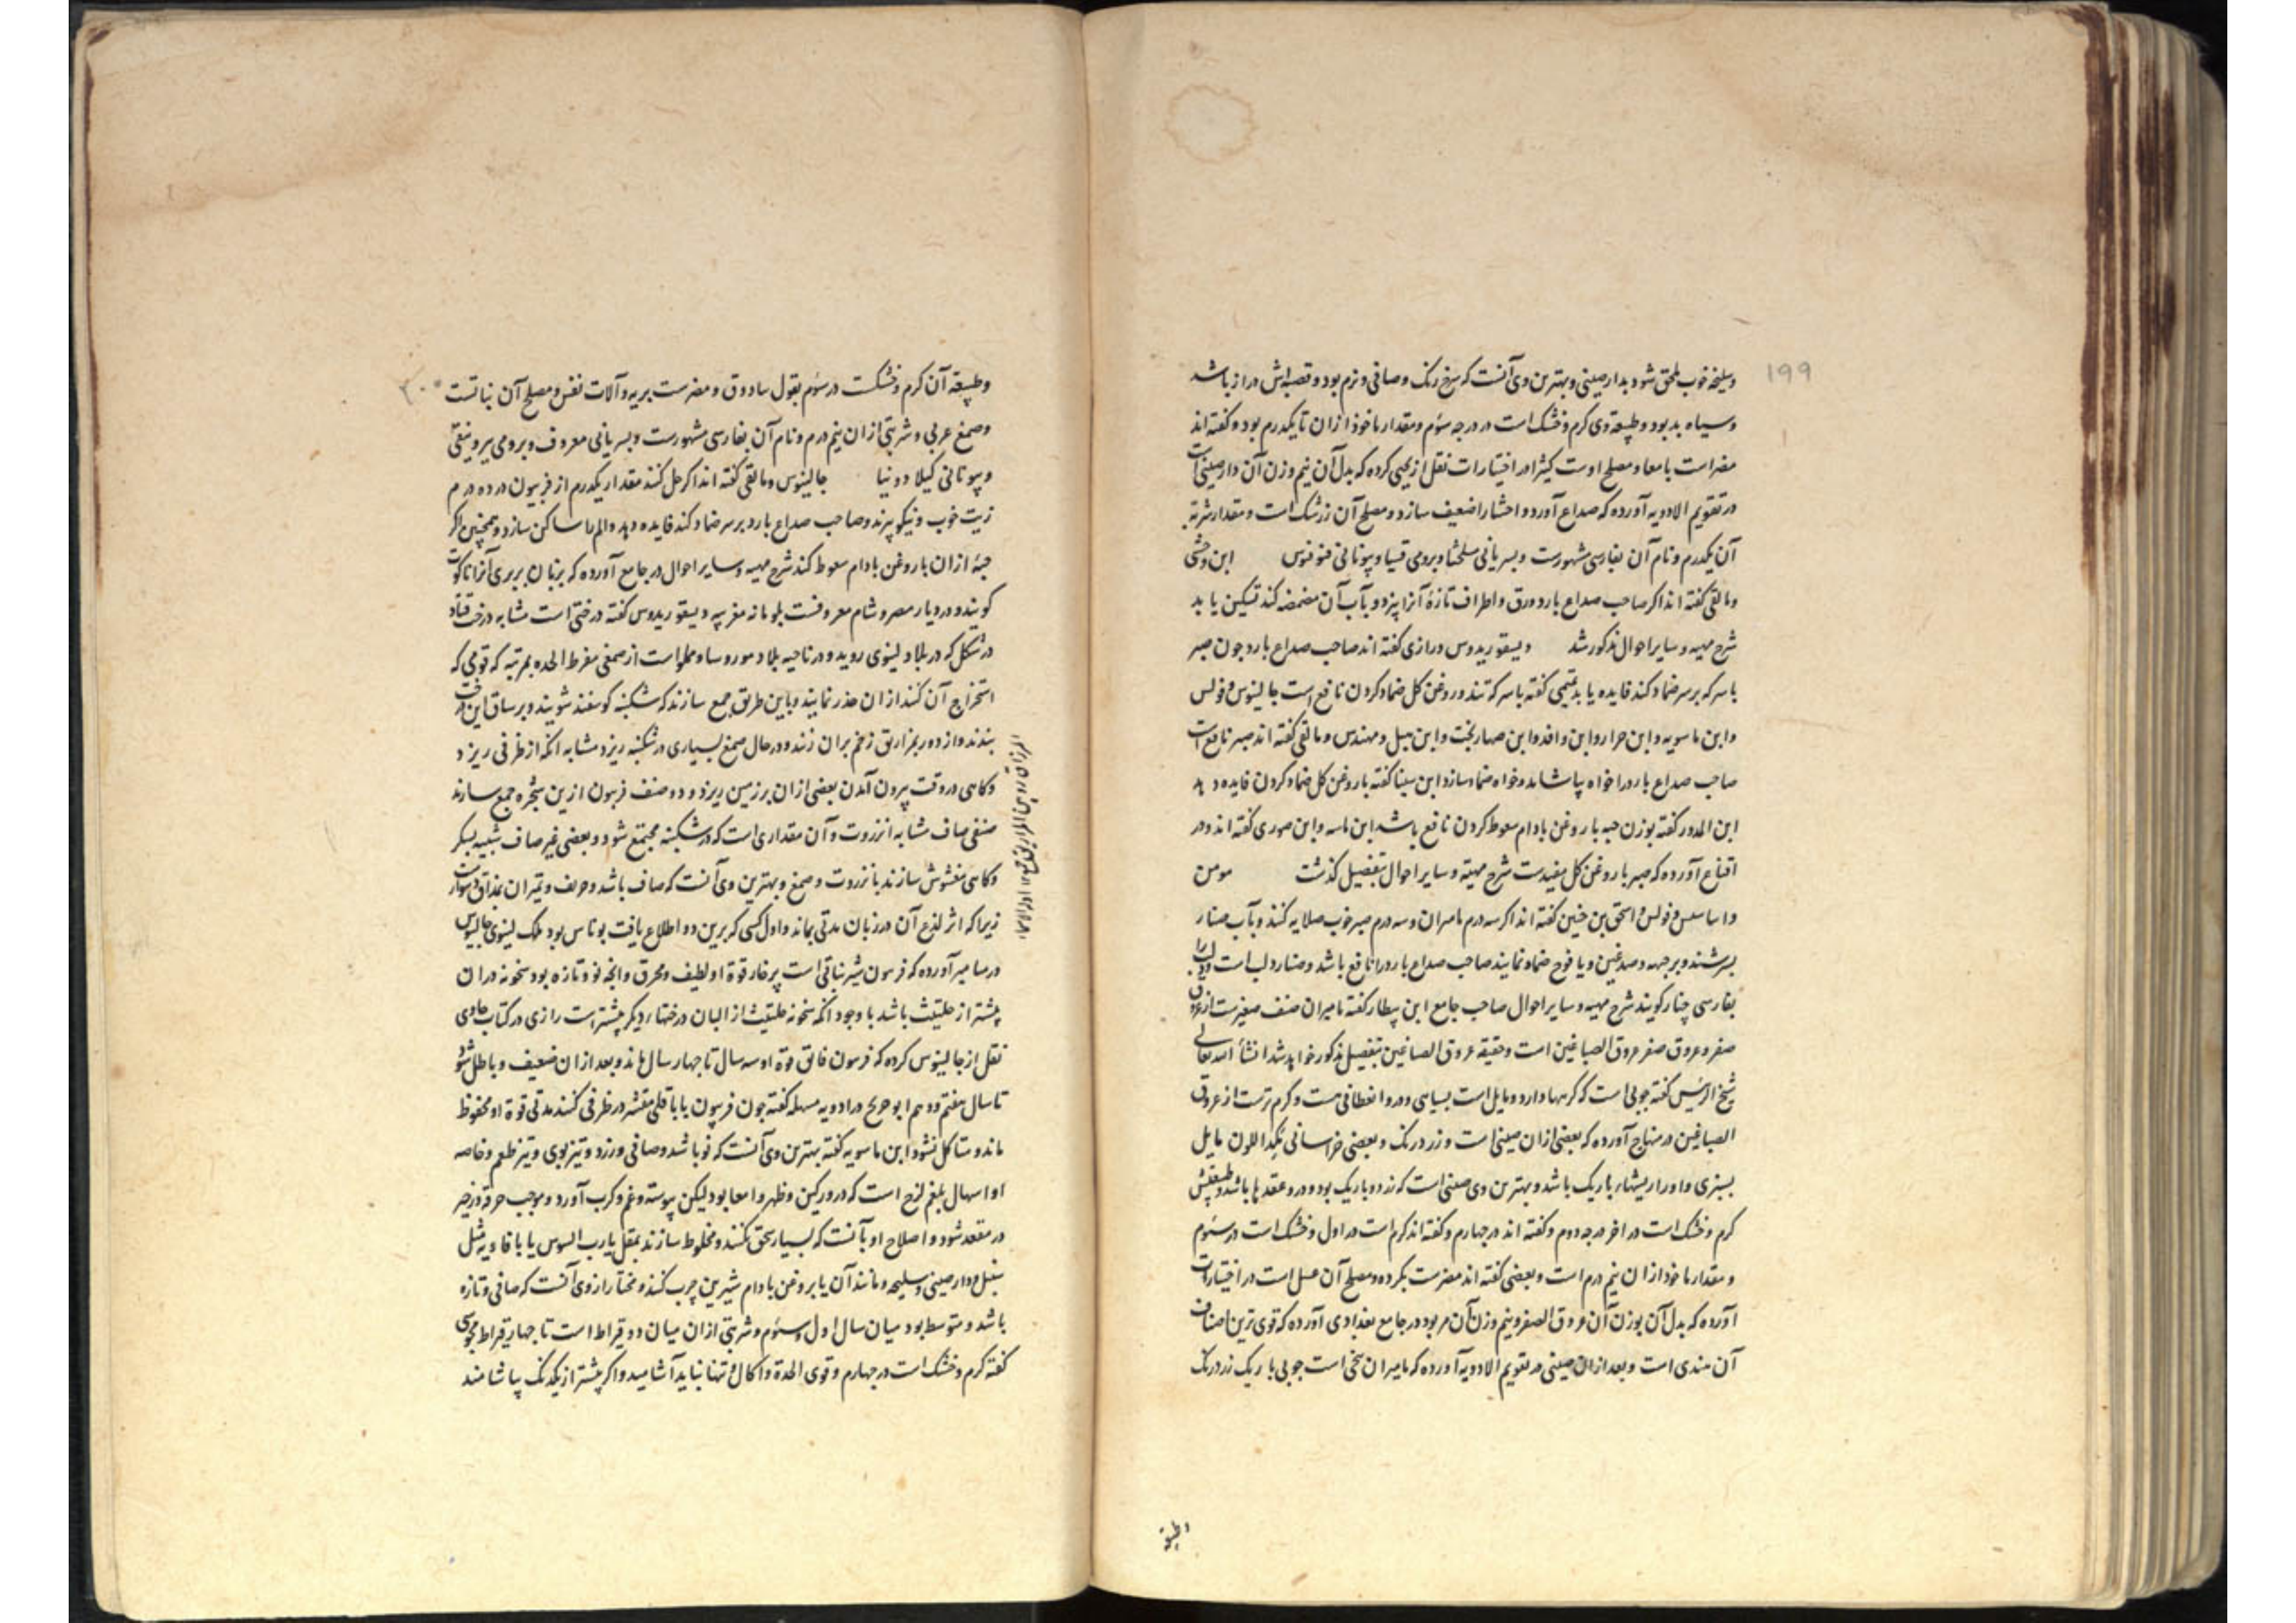 ۱۹۹
وسلیخه خوب ملحق شود بدارصینی وبهترین وی آنست که سرخ رنک وصافی ونرم بود وقصبه‌اش دراز باشد
وسیاه بد بود وطبیعة وی کرم وخشک است در درجه سوم ومقدار ماخوذ ازان تا یکدرم بود وکفته اند
مضر است بامعا ومصلح اوست کثیرا در اختیارات نقل از یحیی کرده که بدل آن نیم وزن آن دارصینی است
در تقویم الادویه آورده که صداع آورد واحشا را ضعیف سازد ومصلح آن زرشک است ومقدار شربة
آن یکدرم ونام آن بفارسی مشهورست وبسریانی سلخثا وبرومی قسیا ویونانی ابن وحشی
ومالقی کفته اند اکر صاحب صداع بارد ورق واطراف تازهٔ آنرا پزد وبآب آن مضمضه کند تسکین یابد
شرح مهیه وسایر احوال مذکور شد دیسقوریدوس ورازی کفته اند صاحب صداع بارد جون صبر
باسرکه برسر ضماد کند فایده یابد تمیمی کفته باسرکه تند وروغن کل ضماد کردن نافع است جالینوس وفولس
وابن ماسویه وابن جزار وابن وافد وابن صهاربخت وابن میل ومهندس ومالقی کفته اند صبر نافع است
صاحب صداع بارد را خواه بیاشامد وخواه ضماد سازد ابن سینا کفته باروغن کل ضماد کردن فایده دهد
ابن المدور کفته بوزن حبه باروغن بادام سعوط کردن نافع باشد ابن ماسه وابن صوری کفته اند ودر
اقناع آورده که صبر باروغن کل مفیدست شرح مهیة وسایر احوال بتفصیل کذشت مومن
وفولس واسحق بن حنین کفته اند اکر سه درم مامیران وسه درم صبر خوب صلایه کنند وبآب صنار
بسرشند وبرجبهه وصدغین ویافوخ ضماد نمایند صاحب صداع بارد را نافع باشد وصنار دلب است ودلب را
بفارسی چنار کویند شرح مهیه وسایر احوال صاحب جامع ابن بیطار کفته مامیران صنف صغیرست از عروق
صفر وعروق صفر عروق الصباغین است وحقیقه عروق الصباغین بتفصیل مذکور خواهد شد انشأ الله تعالی
شیخ الرئیس کفته چوبی است که کرهها دارد ومایل است بسیاهی ودرو انعطافی هست وکرم ترست از عروق
الصباغین در منهاج آورده که بعضی ازان صینی است وزرد رنک وبعضی خراسانی کمد اللون مایل
بسبزی واورا ریشهاء باریک باشد وبهترین وی صینی است که زرد وباریک بود ودرو عقدها باشد وطبیعتش
کرم وخشک است در اخر درجه دوم وکفته اند در چهارم وکفته اند کرم است در اول وخشک است در سوم
ومقدار ماخوذ ازان نیم درم است وبعضی کفته اند مضرست بکرده ومصلح آن عسل است در اختیارات
آورده که بدل آن بوزن آن عروق الصفر ونیم وزن آن مر بود در جامع بغدادی آورده که قوی ترین اصناف
آن هندی است وبعد ازان صینی در تقویم الادویه آورده که مامیران بیخی است چوبی باریک زرد رنک
وطبیعة
۲۰۰
وطبیعة آن کرم وخشکست در سوم بقول سادوق ومضرست بریه وآلات نفس ومصلح آن نباتست
وصمغ عربی وشربتی ازان نیم درم ونام آن بفارسی مشهورست وبسریانی معروف وبرومی
ویونانی جالینوس ومالقی کفته اند اکر حل کنند مقدار یکدرم از فربیون در ده درم
زیت خوب ونیکو پزند وصاحب صداع بارد برسر ضماد کند فایده دهد والم را ساکن سازد وهمچنین اکر
حبهٔ ازان باروغن بادام سعوط کند شرح مهیه وسایر احوال در جامع آورده که بزبان بربری آنرا تاکوت
کویند ودر دیار مصر وشام معروفست بلوبانه مغربیه دیسقوریدوس کفته درختی است مشابه درخت قثاء
در شکل که در بلاد لینوی روید ودر ناحیه بلاد ومملو است از صمغی مفرط الحده بمرتبه که قومی که
استخراج آن کنند ازان حذر نمایند وباین طریق جمع سازند که شکنبه کوسفند شویند وبر ساق این درخت
بندند واز دور بمزاریق زخم بران زنند ودر حال صمغ بسیاری در شکنبه ریزد مشابه آنکه از ظرفی ریزد
وکاهی در وقت بیرون آمدن بعضی ازان بر زمین ریزد ودو صنف فربیون ازین شجره جمع سازند
صنفی صاف مشابه انزروت وآن مقداری است که در شکنبه مجتمع شود وبعضی غیر صاف شبیه بسکر
وکاهی مغشوش سازند بانزروت وصمغ وبهترین وی آنست که صاف باشد وحریف وتمیزان بمذاق دشوارست
زیرا که اثر لذع آن در زبان مدتی بماند واول کسی که برین دوا اطلاع یافت یوناس بود ملک لینوی جالینوس
در میامیر آورده که فربیون شیر نباتی است پرخار قوة او لطیف ومحرق وآنچه نو وتازه بود سخونة دران
بیشتر از حلتیت باشد با وجود آنکه سخونة حلتیت از البان درختهاء دیکر بیشترست رازی در کتاب حاوی
نقل از جالینوس کرده که فربیون فایق قوة او سه سال تا چهار سال ماند وبعد ازان ضعیف وباطل شود
تا سال هفتم ودهم ابو جریح در ادویه مسهله کفته چون فربیون باباقلی مقشر در ظرفی کنند مدتی قوة او محفوظ
ماند ومتاکل نشود ابن ماسویه کفته بهترین وی آنست که نو باشد وصافی وزرد وتیز بوی وتیز طعم وخاصه
او اسهال بلغم لزج است که در ورکین وظهر وامعا بود لیکن پیوسته غم وکرب آورد وموجب حرقة وزحیر
در مقعد شود واصلاح او بآنست که بسیار سحق نکنند ومخلوط سازند بمقل یا رب السوس یا باافاویه مثل
سنبل ودارصینی وسلیخه ومانند آن یا بروغن بادام شیرین چرب کنند ومختار ازوی آنست که صافی وتازه
باشد ومتوسط بود میان سال اول وسوم وشربتی ازان میان دو قیراط است تا چهار قیراط مجوسی
کفته کرم وخشک است در چهارم وقوی الحدة واکال وتنها نباید آشامید واکر بیشتر از یکدنک بیاشامند